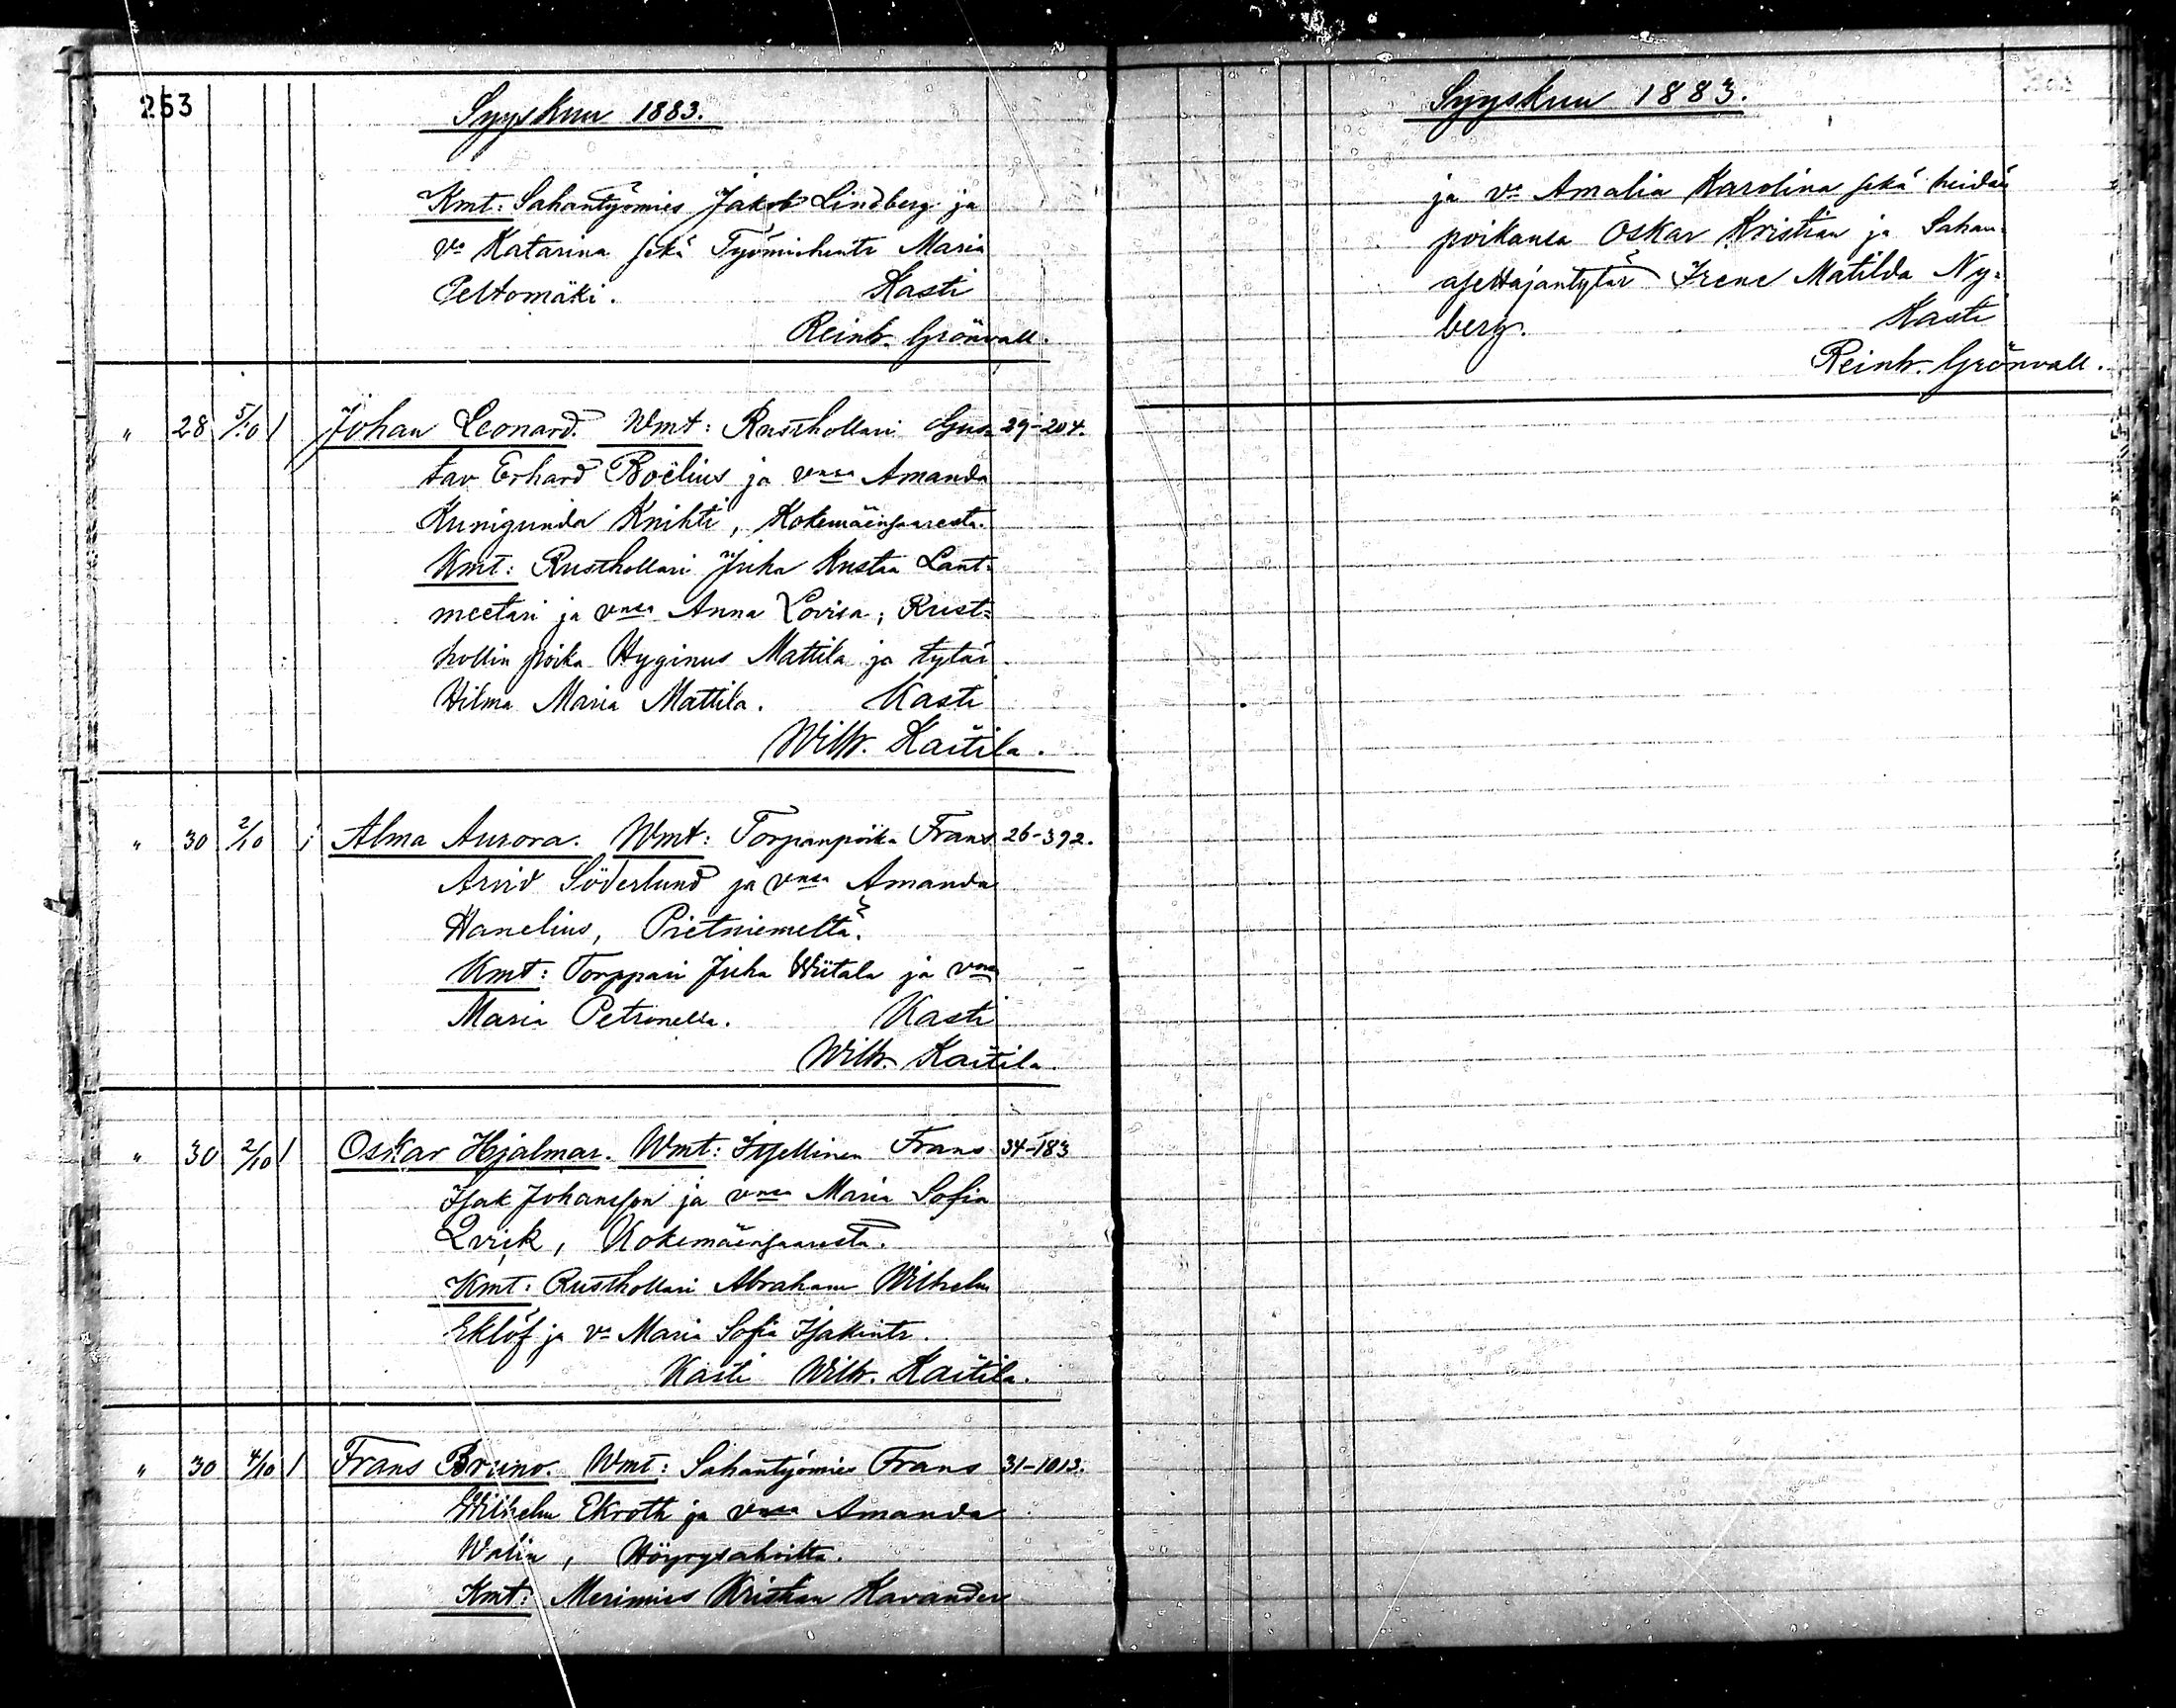 253
Syyskuu 1883.
Kmt: Sahantyömies Jakob Lindberg ja
vo Katarina sekä Työmiehentr Maria
Peltomäki. Kasti
Reinh. Grönvall.
" 28 5/10 / Johan Leonard. Wmt: Rusthollari Gus- 29-204.
tav Erhard Boëlius ja vnsa Amanda
Kunigunda Knihti, Kokemäensaaresta.
Kmt: Rusthollari Juha Kustaa Lant-
meetari ja vnsa Anna Lovisa; Rust=
hollin poika Hyginus Mattila ja tytär
Hilma Maria Mattila. Kasti
Wilh. Kaitila.
" 30 2/10 / Alma Aurora. Wmt: Torpanpoika Frans 26-392.
Arvid Söderlund ja vnsa Amanda
Hanelius, Pietniemeltä.
Kmt: Torppari Juha Wiitala ja vnsa
Maria Petronella. Kasti
Wilh. Kaitila.
" 30 2/10 / Oskar Hjalmar. Wmt: Itsellinen Frans 34-183
Isak Johansson ja vnsa Maria Sofia
Qvick, Kokemäensaaresta.
Kmt: Rusthollari Abraham Wilhelm
Eklöf ja vo Maria Sofia Isakintr.
Kasti Wilh. Kaitila.
" 30 4/10 / Frans Bruno. Wmt: Sahantyömies Frans 31-1013.
Wilhelm Ekroth ja vnsa Amanda
Walin, Höyrysahoilta.
Kmt: Merimies Kristian Kavander
Syyskuu 1883.
ja vo Amalia Karolina sekä heidän
poikansa Oskar Kristian ja Sahan-
asettajantytär Irene Matilda Ny=
berg. Kasti
Reinh. Grönvall.